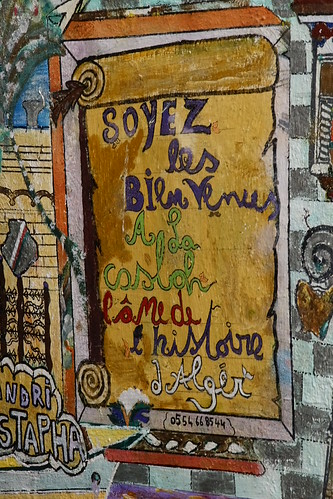 SOYEZ
les
BienVenues
A La
casbah
l'âMe de
l'histoire
d'Algér
0554 66 85 44
ANDRI
STAPHA